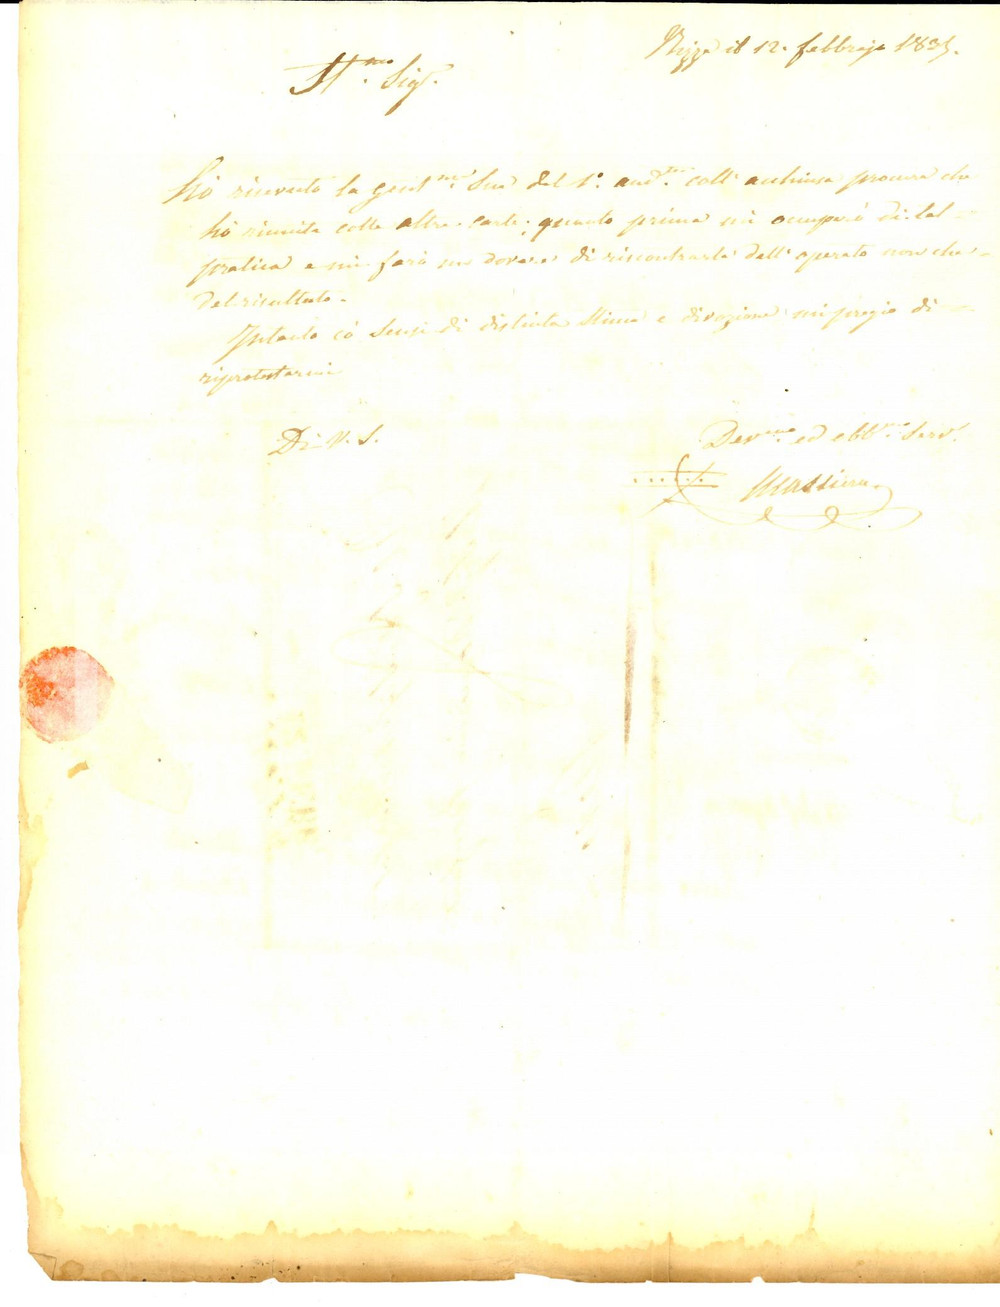 Nizza il 12. febbrajo 1835.
Ill.mo Sig.
Hò ricevuto la gent.ma Sua del 1°. and.te coll' acchiusa procura che
hò riunita colle altre carte; quanto prima mi occuperò di tal
pratica e mi farò un dovere di riscontrarla dell' operato non che
del risultato.
Intanto co' sensi di distinta stima e divozione mi pregio di
riprotestarmi
Di V. S.
Dev.mo ed obb.mo Serv.
Massiera